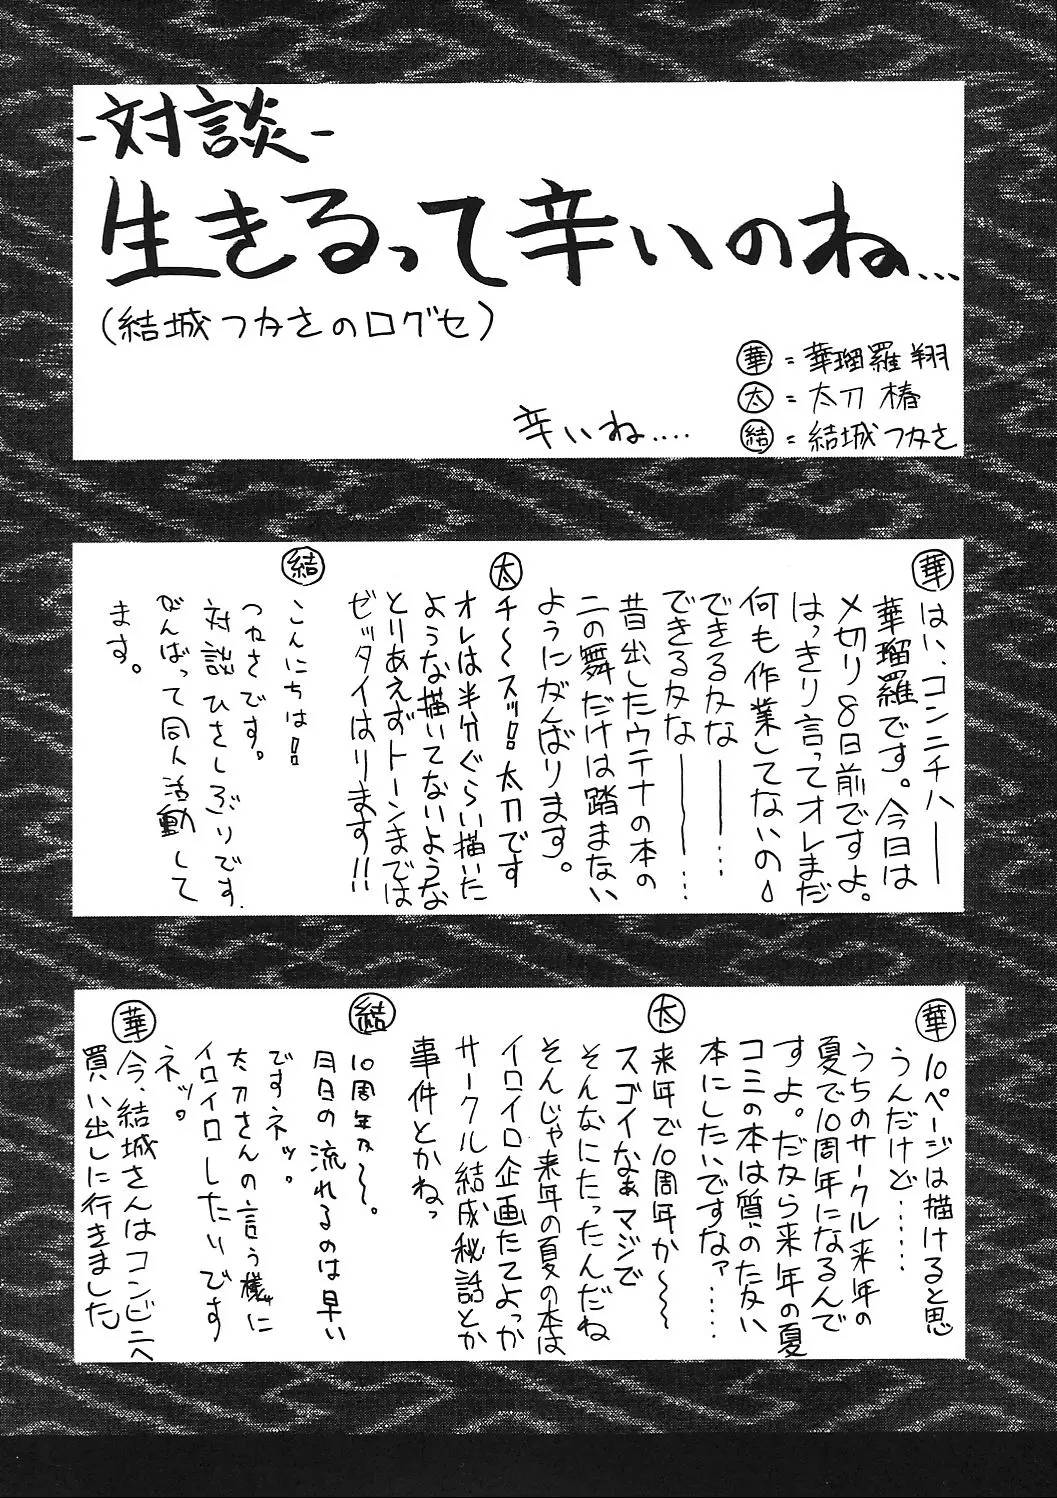 -対談-
生きるって辛いのね…
(結城つかさの口グセ)
辛いね….
華=華瑠羅翔
太=太刀椿
結=結城つかさ
華
はい、コンニチハ――
華瑠羅です。今日は
〆切り8日前ですよ。
はっきり言ってオレまだ
何も作業してないの
できるかな――…
できるかな――…
昔出したウテナの本の
二の舞だけは踏まない
ようにがんばります。
太
チ〜〜スッ!!太刀です
オレは半分ぐらい描いた
ような描いてないような
とりあえずトーンまでは
ゼッタイはります!!
結
こんにちは!!
つかさです。
対談ひさしぶりです.
がんばって同人活動して
ます。
華
10ページは描けると思
うんだけど……
うちのサークル来年の
夏で10周年になるんで
すよ。だから来年の夏
コミの本は質のたかい
本にしたいですなァ……
太
来年で10周年か〜〜〜
スゴイなぁマジで
そんなにたったんだね
そんじゃ来年の夏の本は
イロイロ企画たてよっか
サークル結成秘話とか
事件とかねっ
結
10周年か〜〜。
月日の流れるのは早い
ですネッ。
太刀さんの言う様に
イロイロしたいです
ネッ。
華
今、結城さんはコンビニへ
買い出しに行きました